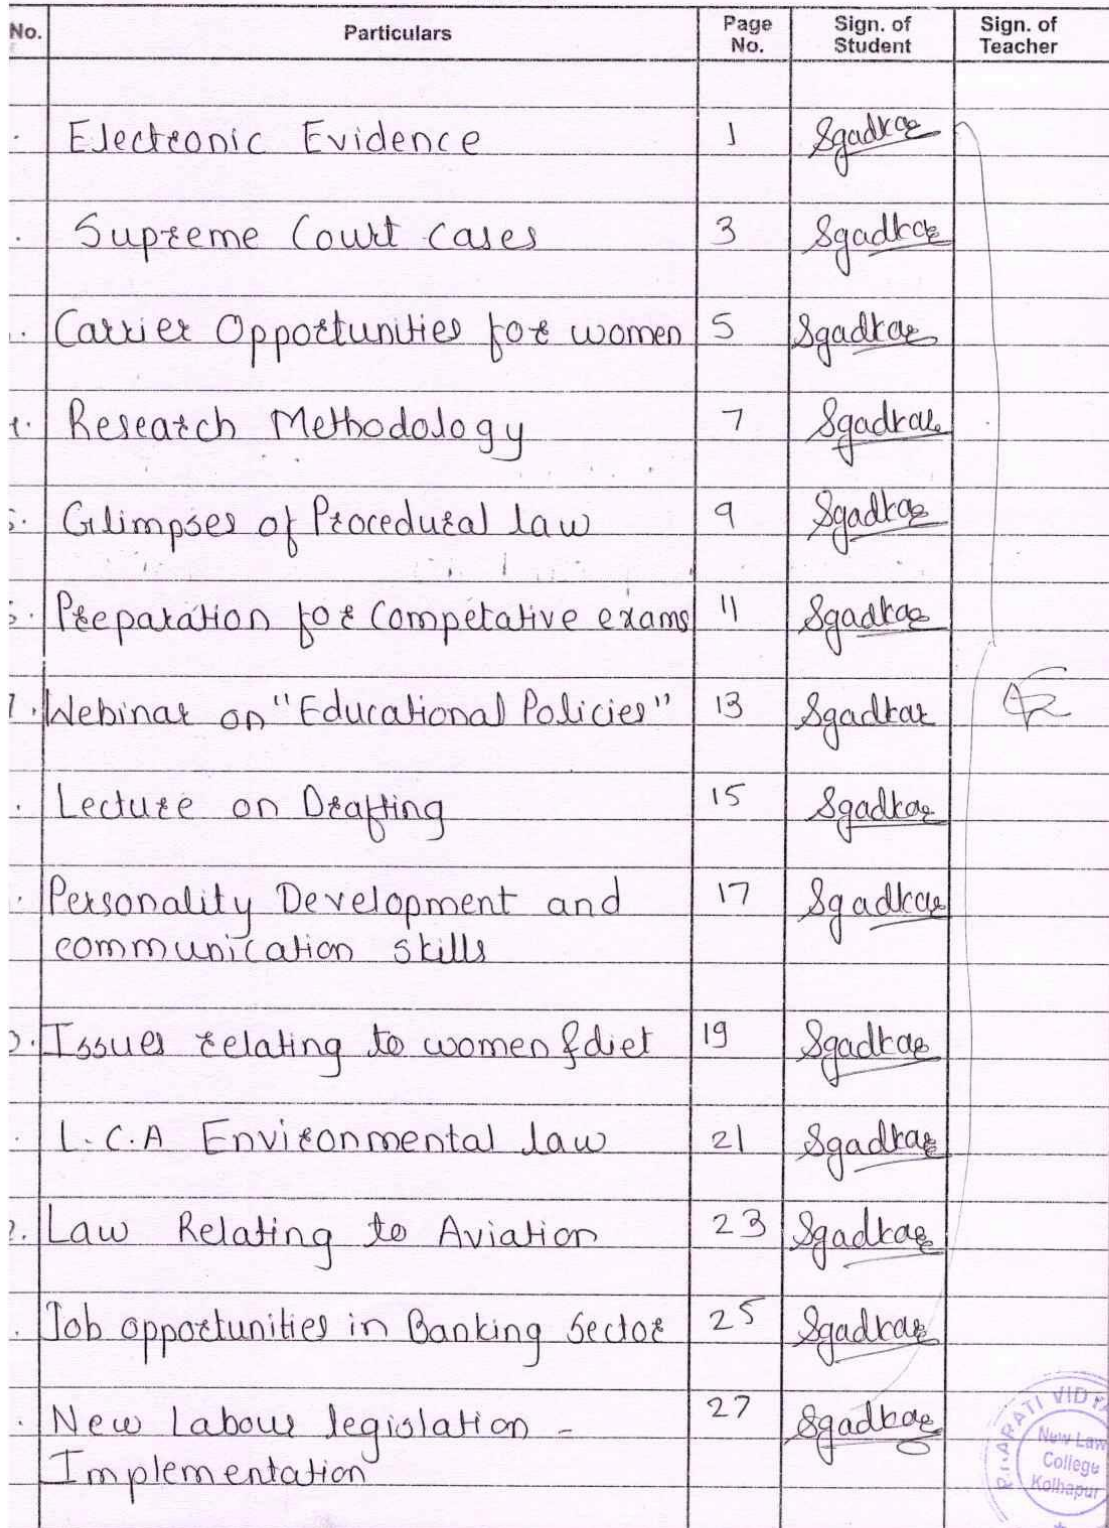 No. Particulars Page No. Sign. of Student Sign. of Teacher
Electronic Evidence 1 Sgadkar
Supreme Court cases 3 Sgadkar
Carrier Opportunities for women 5 Sgadkar
Research Methodology 7 Sgadkar
Glimpses of Procedural law 9 Sgadkar
Preparation for Competative exams 11 Sgadkar
7. Webinar on "Educational Policies" 13 Sgadkar
Lecture on Drafting 15 Sgadkar
Personality Development and 17 Sgadkar
communication skills
Issues relating to women & diet 19 Sgadkar
L.C.A Environmental law 21 Sgadkar
2. Law Relating to Aviation 23 Sgadkar
Job opportunities in Banking Sector 25 Sgadkar
New Labour legislation - 27 Sgadkar
Implementation
BHARATI VIDYA
New Law
College
Kolhapur